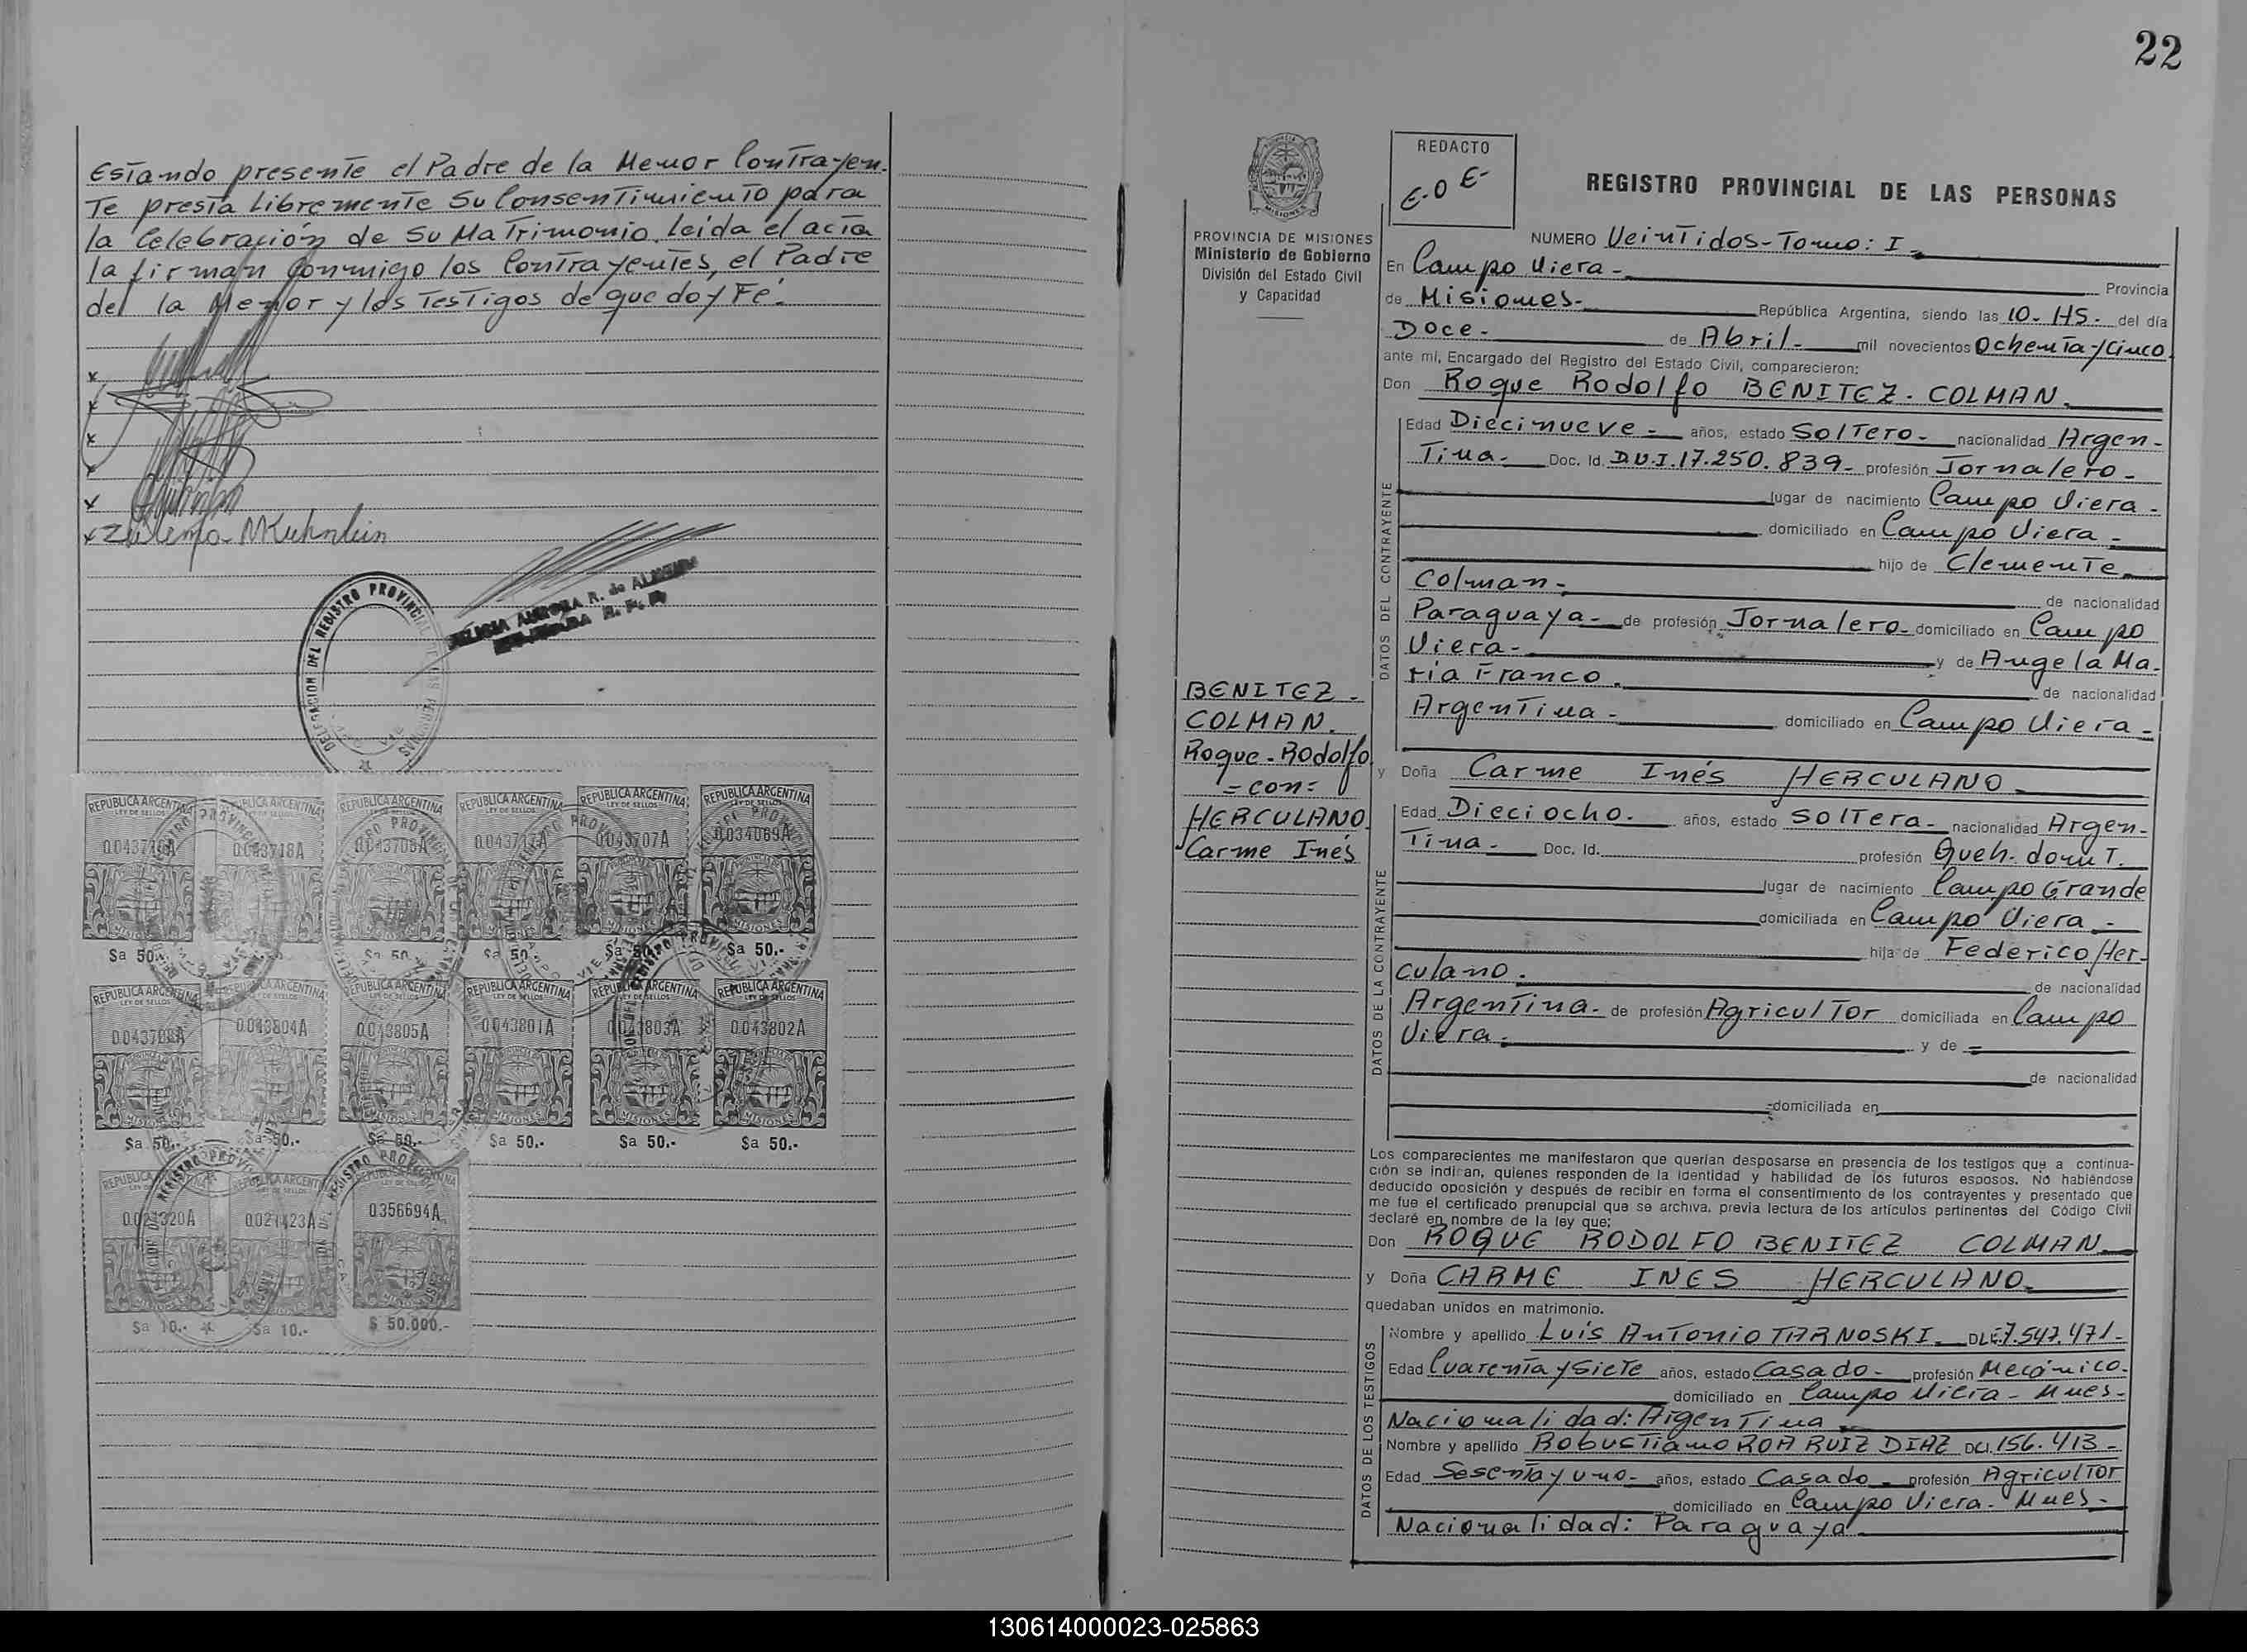 Estando presente el Padre de la Menor Contrayen-
Te presta Libremente Su Consentimiento para
la Celebración de Su Matrimonio. leida el acta
la firman Conmigo los Contrayentes, el Padre
de la Menor y los Testigos de que doy Fé.
x
x
x
x
x
x Zulema Mkuhnlein
DELEGACION DEL REGISTRO PROVINCIAL DE LAS PERSONAS
REPUBLICA ARGENTINA REPUBLICA ARGENTINA REPUBLICA ARGENTINA REPUBLICA ARGENTINA REPUBLICA ARGENTINA REPUBLICA ARGENTINA
LEY DE SELLOS LEY DE SELLOS LEY DE SELLOS LEY DE SELLOS LEY DE SELLOS LEY DE SELLOS
0.043718A 0.043707A 0.034069A
MISIONES MISIONES MISIONES MISIONES MISIONES MISIONES
$a 50.- $a 50.- $a 50.- $a 50.- $a 50.-
REPUBLICA ARGENTINA REPUBLICA ARGENTINA REPUBLICA ARGENTINA REPUBLICA ARGENTINA REPUBLICA ARGENTINA REPUBLICA ARGENTINA
LEY DE SELLOS LEY DE SELLOS LEY DE SELLOS LEY DE SELLOS LEY DE SELLOS LEY DE SELLOS
0.043804A 0.043805A 0.043801A 0.043803A 0.043802A
MISIONES MISIONES MISIONES MISIONES MISIONES MISIONES
$a 50.- $a 50.- $a 50.- $a 50.- $a 50.- $a 50.-
REPUBLICA ARGENTINA REPUBLICA ARGENTINA REPUBLICA ARGENTINA
0.021423A 0.356694A
$a 10.- $a 10.- $ 50.000.-
22
PROVINCIA DE MISIONES
Ministerio de Gobierno
División del Estado Civil
y Capacidad
REDACTO
E.O E-
REGISTRO PROVINCIAL DE LAS PERSONAS
NUMERO Veintidos-Tomo: I-
En Campo Viera- Provincia
de Misiones- República Argentina, siendo las 10- HS- del día
Doce- de Abril- mil novecientos Ochenta y Cinco.
ante mí, Encargado del Registro del Estado Civil, comparecieron:
Don Roque Rodolfo BENITEZ- COLMAN.
DATOS DEL CONTRAYENTE
Edad Diecinueve- años, estado Soltero- nacionalidad Argen-
Tina- Doc. Id. D.N.I.17.250.839- profesión Jornalero-
lugar de nacimiento Campo Viera-
domiciliado en Campo Viera-
hijo de Clemente
Colman- de nacionalidad
Paraguaya- de profesión Jornalero- domiciliado en Campo
Viera- y de Angela Ma-
ria Franco. de nacionalidad
Argentina- domiciliado en Campo Viera-
BENITEZ-
COLMAN.
Roque-Rodolfo
=con=
HERCULANO
Carme Inés
y Doña Carme Inés HERCULANO
DATOS DE LA CONTRAYENTE
Edad Dieciocho- años, estado Soltera- nacionalidad Argen-
Tina- Doc. Id. profesión Queh. domt.
lugar de nacimiento Campo Grande
domiciliada en Campo Viera-
hija de Federico Her-
culano. de nacionalidad
Argentina- de profesión Agricultor domiciliada en Campo
Viera- y de =
de nacionalidad
domiciliada en
Los comparecientes me manifestaron que querían desposarse en presencia de los testigos que a continua-
ción se indican, quienes responden de la identidad y habilidad de los futuros esposos. No habiéndose
deducido oposición y después de recibir en forma el consentimiento de los contrayentes y presentado que
me fue el certificado prenupcial que se archiva, previa lectura de los artículos pertinentes del Código Civil
declaré en nombre de la ley que:
Don ROQUE RODOLFO BENITEZ COLMAN
y Doña CARME INES HERCULANO
quedaban unidos en matrimonio.
DATOS DE LOS TESTIGOS
Nombre y apellido Luis Antonio TARNOSKI- DLE.7.547.471-
Edad Cuarenta y Siete años, estado Casado- profesión Mecánico-
domiciliado en Campo Viera- Mnes-
Nacionalidad: Argentina
Nombre y apellido Robustiano ROA RUIZ DIAZ DCI.156.413-
Edad Sesenta y uno- años, estado Casado- profesión Agricultor
domiciliado en Campo Viera- Mnes-
Nacionalidad: Paraguaya
130614000023-025863